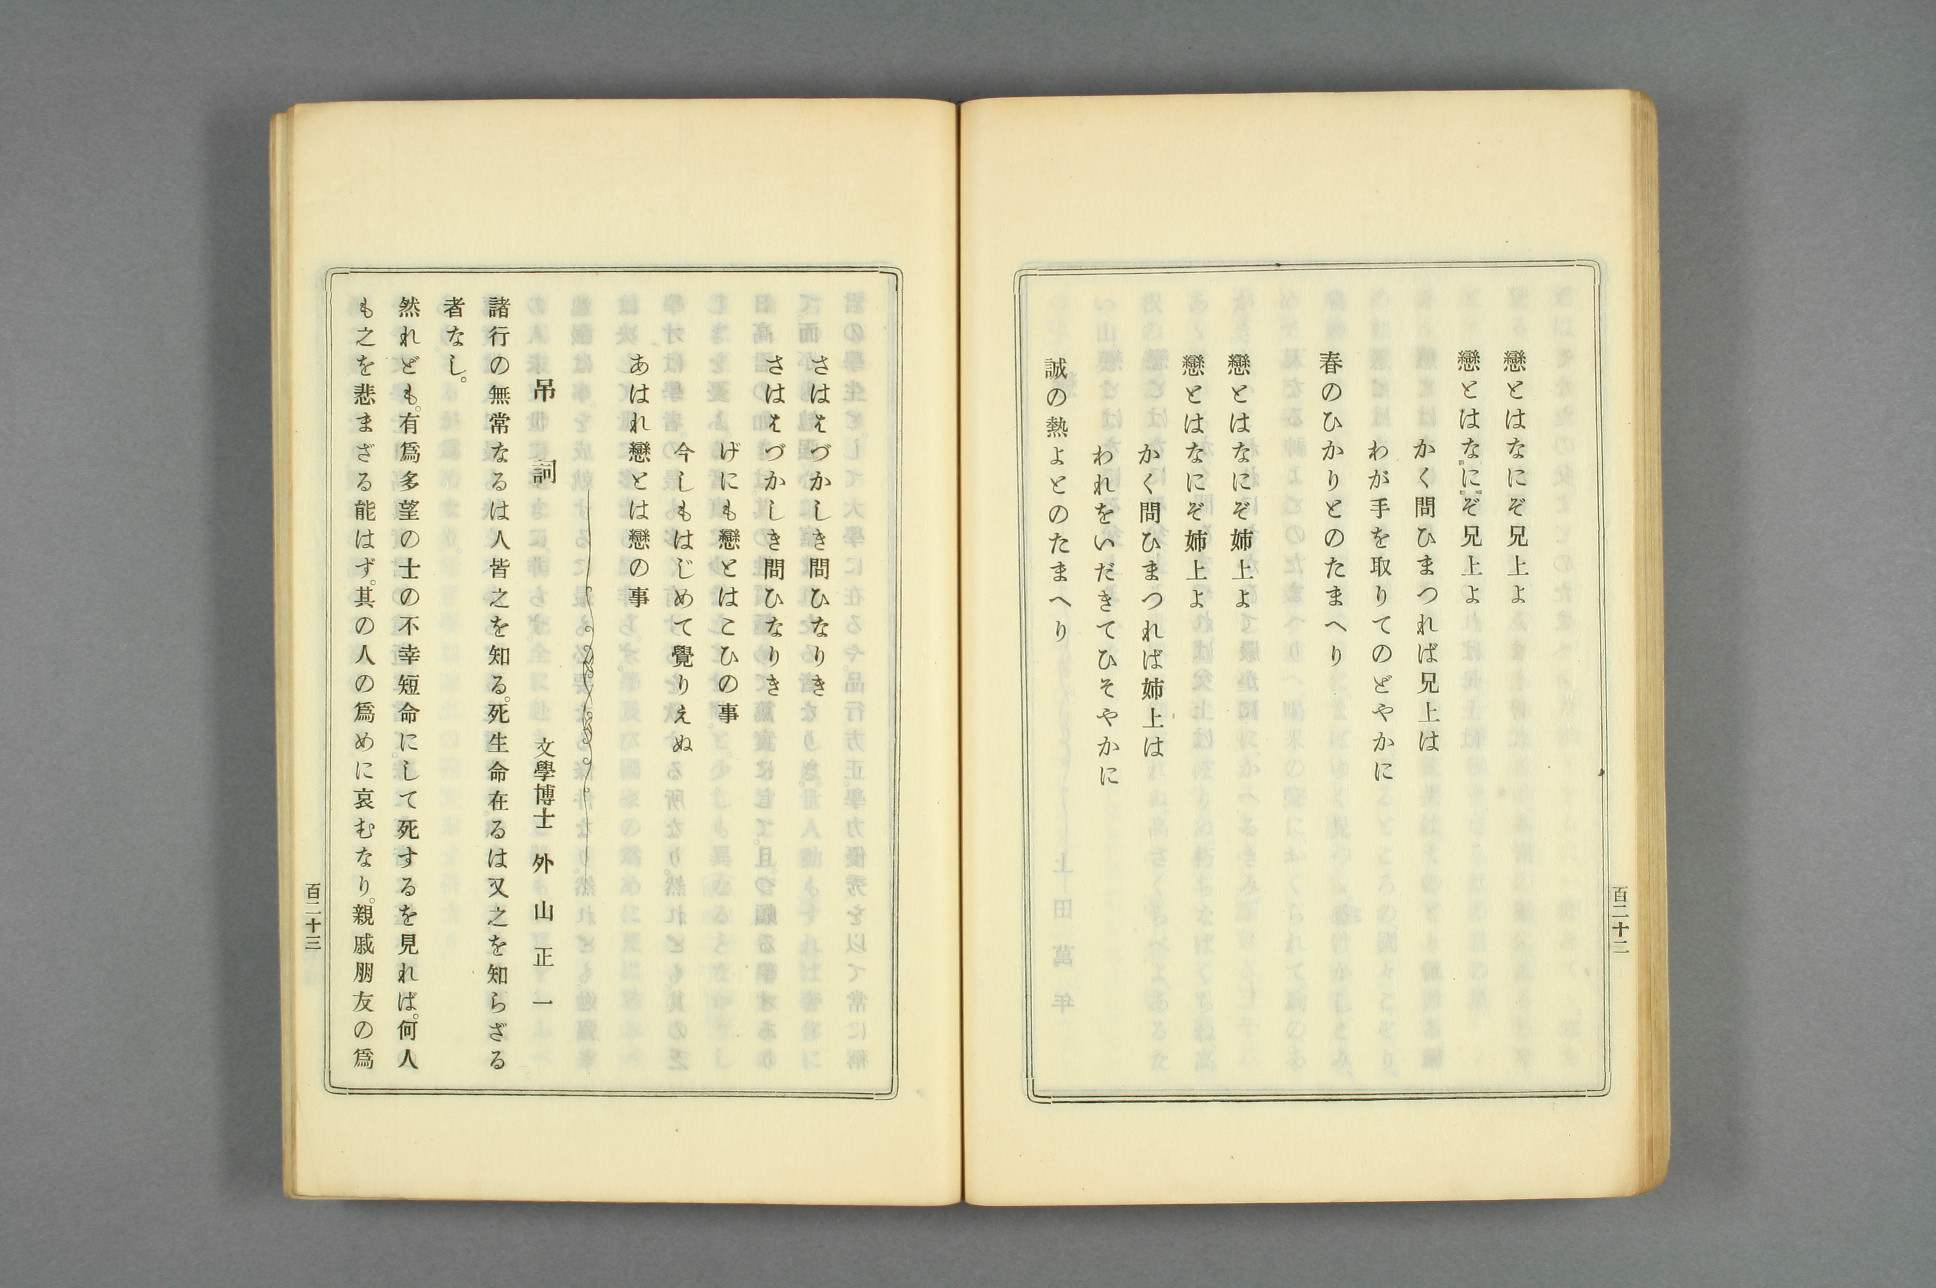 戀とはなにぞ兄上よ
戀とはなにぞ兄上よ
かく問ひまつれば兄上は
わが手を取りてのどやかに
春のひかりとのたまへり
戀とはなにぞ姉上よ
戀とはなにぞ姉上よ
かく問ひまつれば姉上は
われをいだきてひそやかに
誠の熱よとのたまへり
百二十二
さはえづかしき問ひなりき
さはえづかしき問ひなりき
げにも戀とはこひの事
今しもはじめて覺りえぬ
あはれ戀とは戀の事
吊詞 文學博士 外山正一
諸行の無常なるは人皆之を知る。死生命在るは又之を知らざる
者なし。
然れども。有爲多望の士の不幸短命にして死するを見れば。何人
も之を悲まざる能はず。其の人の爲めに哀むなり。親戚朋友の爲
百二十三